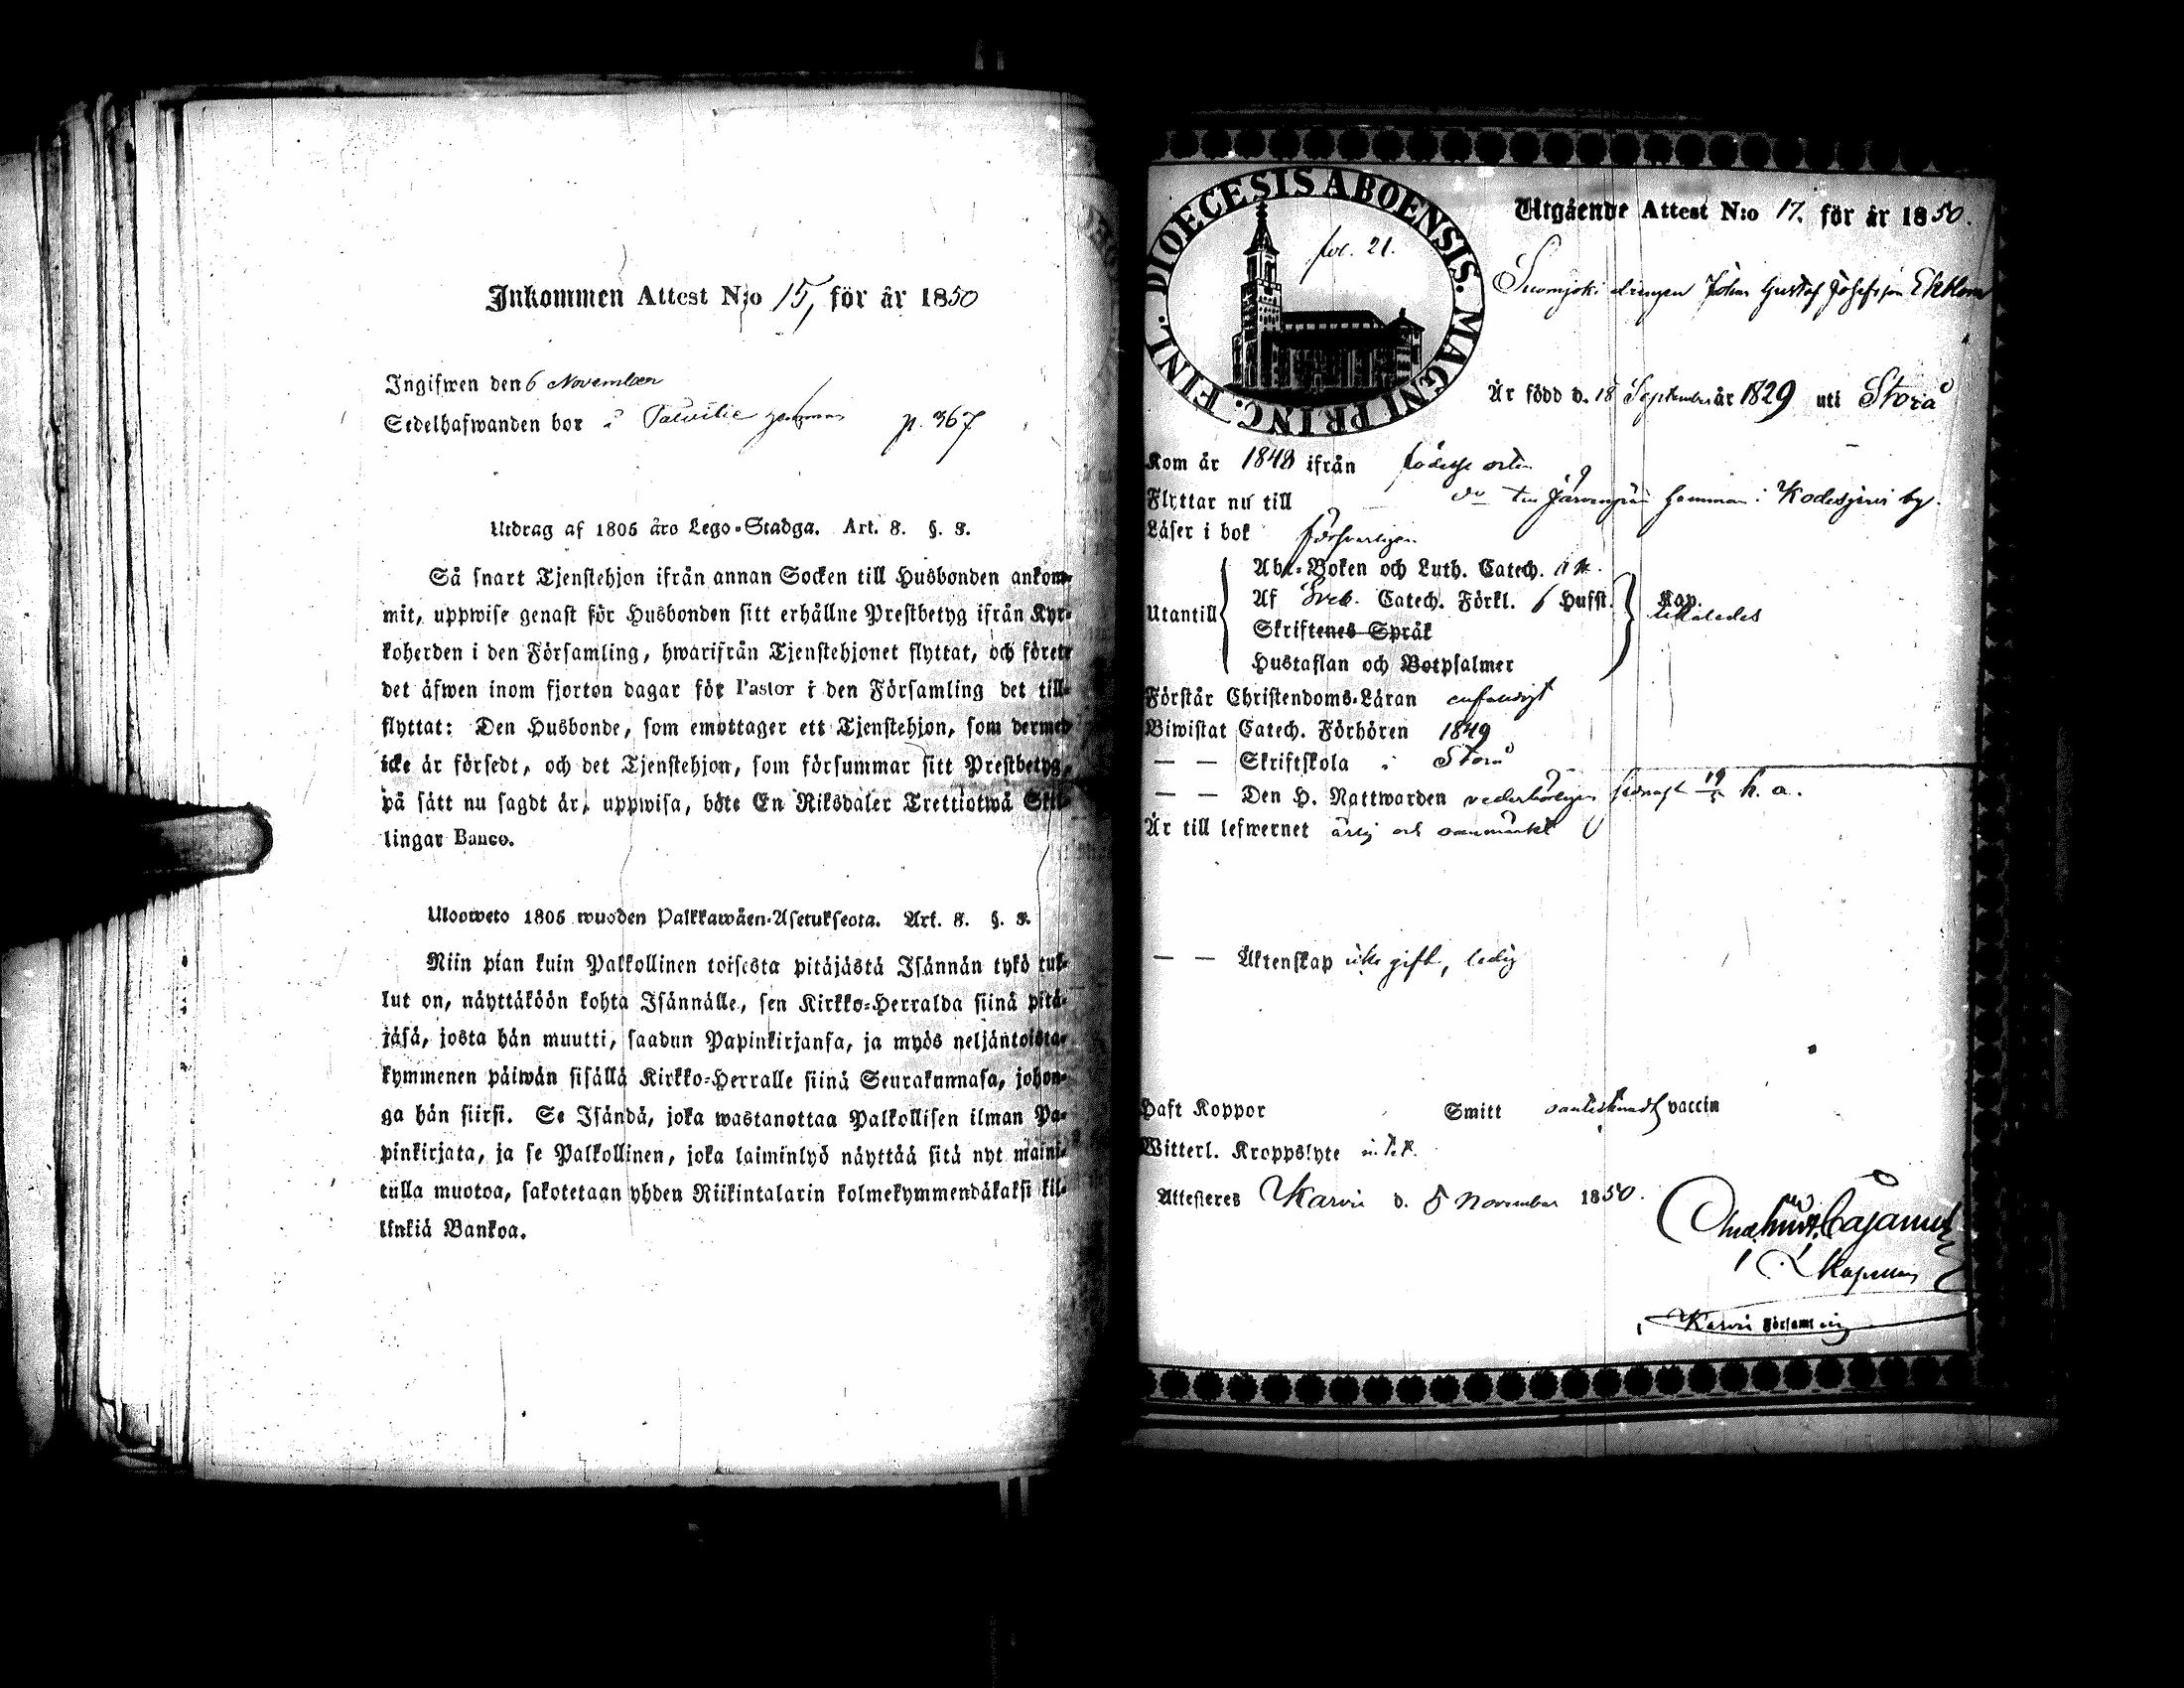 Inkommen Attest N:o 15, för år 1850
Ingifwen den 6 November
Sedelhafwanden bor i hemman p. 367
Utdrag af 1805 års Lego-Stadga. Art. 8. §. 3.
Så snart Tjenstehjon ifrån annan Socken till Husbonden ankom-
mit, uppwise genast för Husbonden sitt erhållne Prestbetyg ifrån Kyr-
koherden i den Församling, hwarifrån Tjenstehjonet flyttat, och förete
det äfwen inom fjorton dagar för Pastor i den Församling det till-
flyttat: Den Husbonde, som emottager ett Tjenstehjon, som dermed
icke är försedt, och det Tjenstehjon, som försummar sitt Prestbetyg,
på sätt nu sagdt är, uppwisa, böte En Riksdaler Trettiotwå Skil-
lingar Banco.
Ulosweto 1805 wuoden Palkkawäen-Asetuksesta. Art. 8. §. 3.
Niin pian kuin Palkollinen toisesta pitäjästä Isännän tykö tul-
lut on, näyttäköön kohta Isännälle, sen Kirkko-Herralda siinä pitä-
jäsä, josta hän muutti, saadun Papinkirjansa, ja myös neljäntoista-
kymmenen päiwän sisällä Kirkko-Herralle siinä Seurakunnasa, johon-
ga hän siirsi. Se Isändä, joka wastanottaa Palkollisen ilman Pa-
pinkirjata, ja se Palkollinen, joka laiminlyö näyttää sitä nyt maini-
tulla muotoa, sakotetaan yhden Riikintalarin kolmekymmendäkaksi kil-
linkiä Bankoa.
DIOECESIS ABOENSIS. MAGNI PRINC. FINL.
fol. 21.
Utgående Attest N:o 17. för år 1850.
drengen Johan Gustaf Josefsson
Är född d. 18 September år 1829 uti Storå
Kom år 1848 ifrån födelse orten
Flyttar nu till hemman i Kodesjervi by.
Läser i bok försvarligen
Utantill
Abc-Boken och Luth. Catech.
Af Sveb. Catech. Förkl. 6 Hufst. Kap.
Skriftenes Språk likaledes
Hustaflan och Botpsalmer
Förstår Christendoms-Läran enfaldigt
Biwistat Catech. Förhören 1849
— — Skriftskola i Storå
— — Den H. Nattwarden vederbörligen senast 19/5 h. a.
Är till lefwernet ärlig och oanmärkt
— — Äktenskap icke gift, ledig
Haft Koppor Smitt vaccin
Witterl. Kroppslyte
Attesteres Karvia d. 5 November 1850.
Cajanus
Kapellan
i Karvia Församling